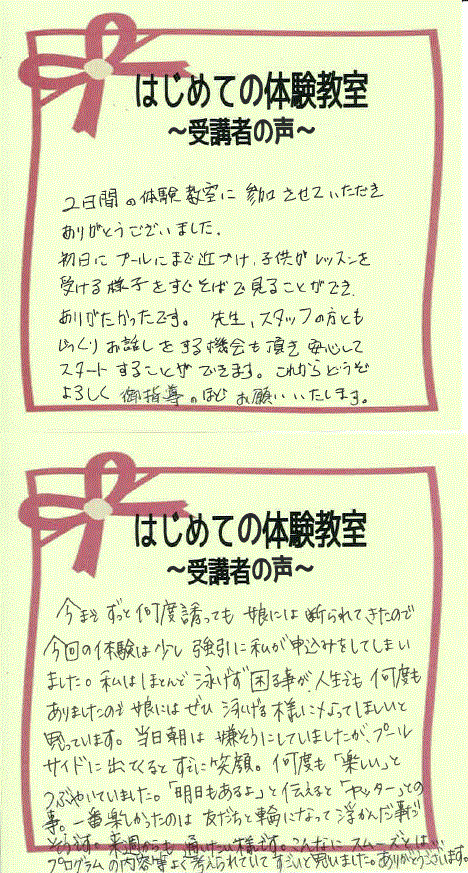 はじめての体験教室
～受講者の声～
2日間の体験教室に参加させていただき
ありがとうございました。
初日にプールにまで近づけ、子供がレッスンを
受ける様子をすぐそばで見ることができ
ありがたかったです。先生、スタッフの方とも
じっくりお話しをする機会も頂き安心して
スタートすることができます。これからどうぞ
よろしく御指導のほどお願いいたします。
はじめての体験教室
～受講者の声～
今までずっと何度誘っても娘には断られてきたので
今回の体験は少し強引に私が申込みをしてしまい
ました。私はほとんど泳げず困る事が人生でも何度も
ありましたので娘にはぜひ泳げる様になってほしいと
思っています。当日朝は嫌そうにしていましたが、プール
サイドに出てくるとすでに笑顔。何度も「楽しい」と
つぶやいていました。「明日もあるよ」と伝えると「ヤッター」との
事。一番楽しかったのは友だちと輪になって浮かんだ事だ
そうです。来週からも通いたい様です。こんなにスムーズとは
プログラムの内容等よく考えられていてすごいと思いました。ありがとうございます。